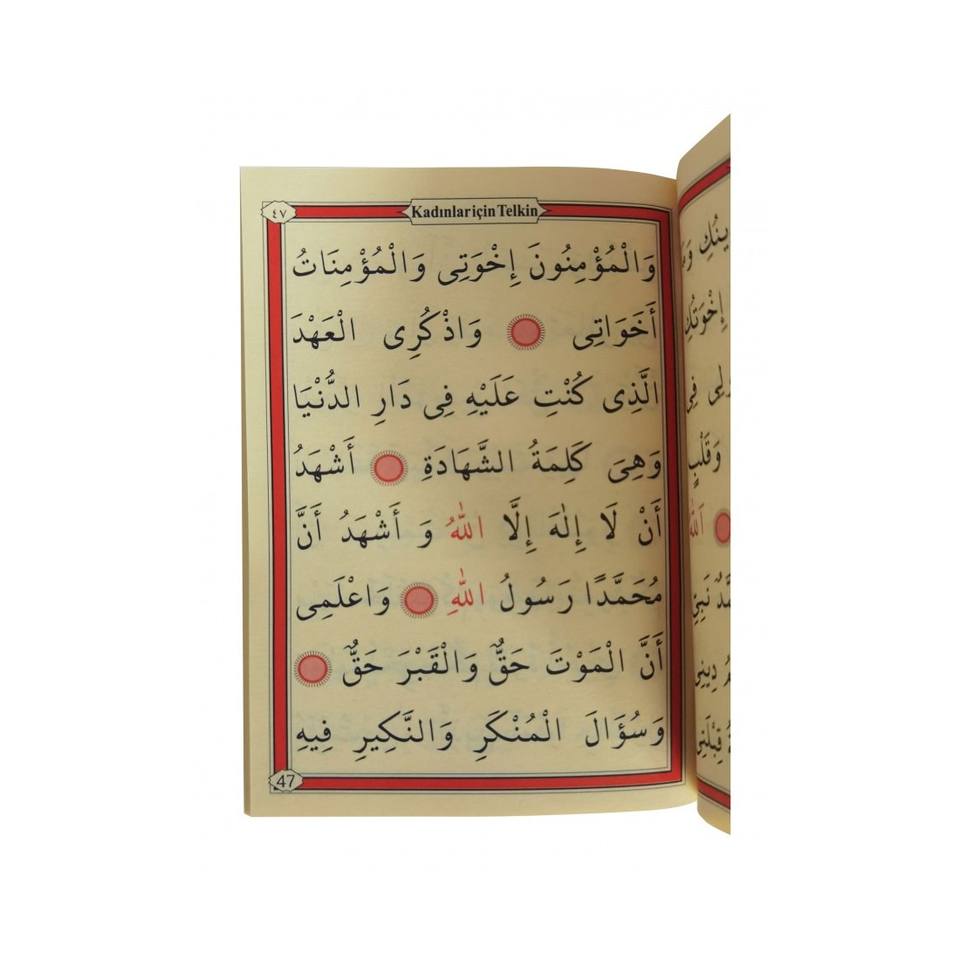 ٤٧
Kadınlar için Telkin
وَالْمُؤْمِنُونَ إِخْوَتِى وَالْمُؤْمِنَاتُ
أَخَوَاتِى وَاذْكُرِى الْعَهْدَ
الَّذِى كُنْتِ عَلَيْهِ فِى دَارِ الدُّنْيَا
وَهِىَ كَلِمَةُ الشَّهَادَةِ أَشْهَدُ
أَنْ لَا إِلٰهَ إِلَّا اللّٰهُ وَ أَشْهَدُ أَنَّ
مُحَمَّدًا رَسُولُ اللّٰهِ وَاعْلَمِى
أَنَّ الْمَوْتَ حَقٌّ وَالْقَبْرَ حَقٌّ
وَسُؤَالَ الْمُنْكَرِ وَالنَّكِيرِ فِيهِ
47